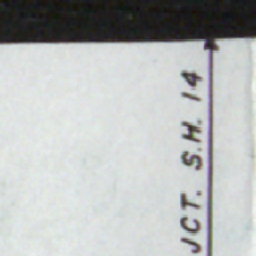 JCT. S.H. 14